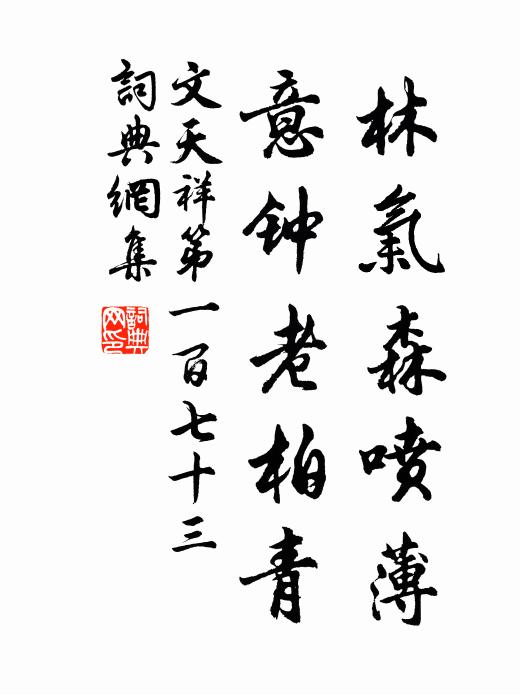 林氣森噴薄
意钟老柏青
文天祥第一百七十三
詞典網集
詞典
网印